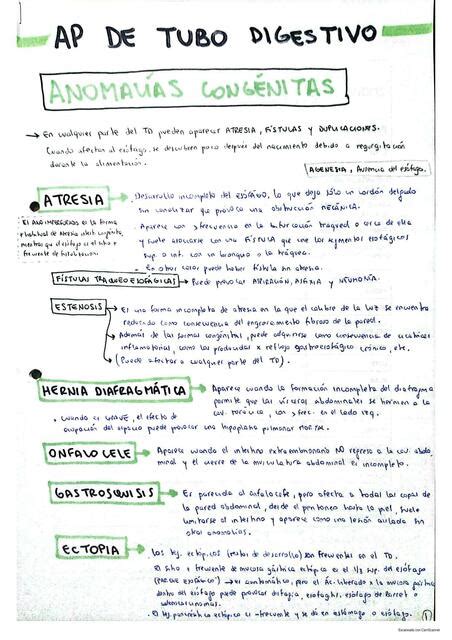 AP DE TUBO DIGESTIVO
ANOMALÍAS CONGÉNITAS
→ En cualquier parte del TD pueden aparecer ATRESIA, FÍSTULAS y DUPLICACIONES.
Cuando afectan al esófago, se descubren poco después del nacimiento debido a regurgitación
durante la alimentación.
AGENESIA, Ausencia del esófago.
ATRESIA
Desarrollo incompleto del ESÓFAGO, lo que deja sólo un cordón delgado
sin canalizar que provoca una obstrucción MECÁNICA.
Aparece con > frecuencia en la bifurcación traqueal o cerca de ella
y suele asociarse con una FÍSTULA que une los segmentos esofágicos
sup. o inf. con un bronquio o la tráquea.
En otros casos puede haber fístula sin atresia.
El ANO IMPERFORADO es la forma
+ habitual de atresia intest. congénita,
mientras que el esófago es el sitio +
frecuente de fistulización.
FÍSTULAS TRAQUEOESOFÁGICAS → Puede provocar ASPIRACIÓN, ASFIXIA y NEUMONÍA.
ESTENOSIS
Es una forma incompleta de atresia en la que el calibre de la luz se encuentra
reducido como consecuencia del engrosamiento fibroso de la pared.
Además de las formas congénitas, puede adquirirse como consecuencia de cicatrices
inflamatorias, como las producidas x reflujo gastroesofágico crónico, etc.
(Puede afectar a cualquier parte del TD).
HERNIA DIAFRAGMÁTICA → Aparece cuando la formación incompleta del diafragma
permite que las vísceras abdominales se hernien a la
cav. torácica, con > frec. en el lado izq.
• Cuando es GRAVE, el efecto de
ocupación del espacio puede provocar una hipoplasia pulmonar MORTAL.
ONFALOCELE → Aparece cuando el intestino extraembrionario NO regresa a la cav. abdo-
minal y el cierre de la musculatura abdominal es incompleto.
GASTROSQUISIS → Es parecida al onfalocele, pero afecta a todas las capas de
la pared abdominal, desde el peritoneo hasta la piel, suele
limitarse al intestino y aparece como una lesión aislada sin
otras anomalías.
ECTOPIA → Los tej. ectópicos (restos de desarrollo) son frecuentes en el TD.
El sitio + frecuente de mucosa gástrica ectópica es el 1/3 sup. del esófago
→ es asintomático, pero el ác. liberado x la mucosa gástrica
dentro del esófago puede provocar disfagia, esofagitis, esófago de Barret o
adenocarcinomas.
El tej. pancreático ectópico es - frecuente y se da en estómago o esófago.
1
Escaneado con CamScanner